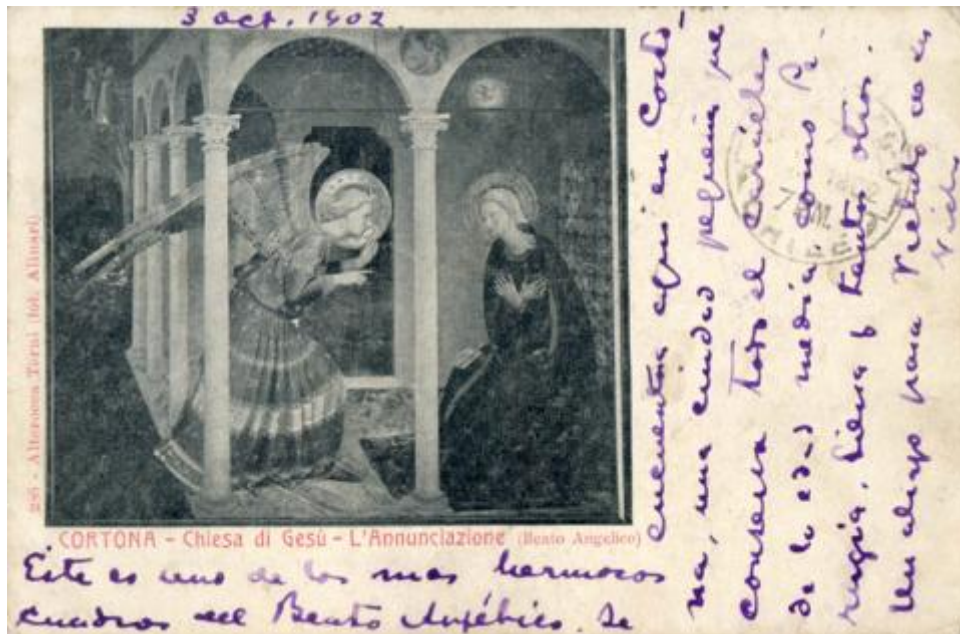 3 oct. 1902
286 - Alterocca Terni (fot. Alinari)
CORTONA - Chiesa di Gesù - L'Annunciazione (Beato Angelico)
Este es uno de los mas hermosos
cuadros del Beato Angélico. Se
encuentra aqui en Corto-
na, una ciudad pequeña que
conserva todo el carácter
de la edad media como Pe-
rugia, Siena y tantas otras.
Un abrazo para